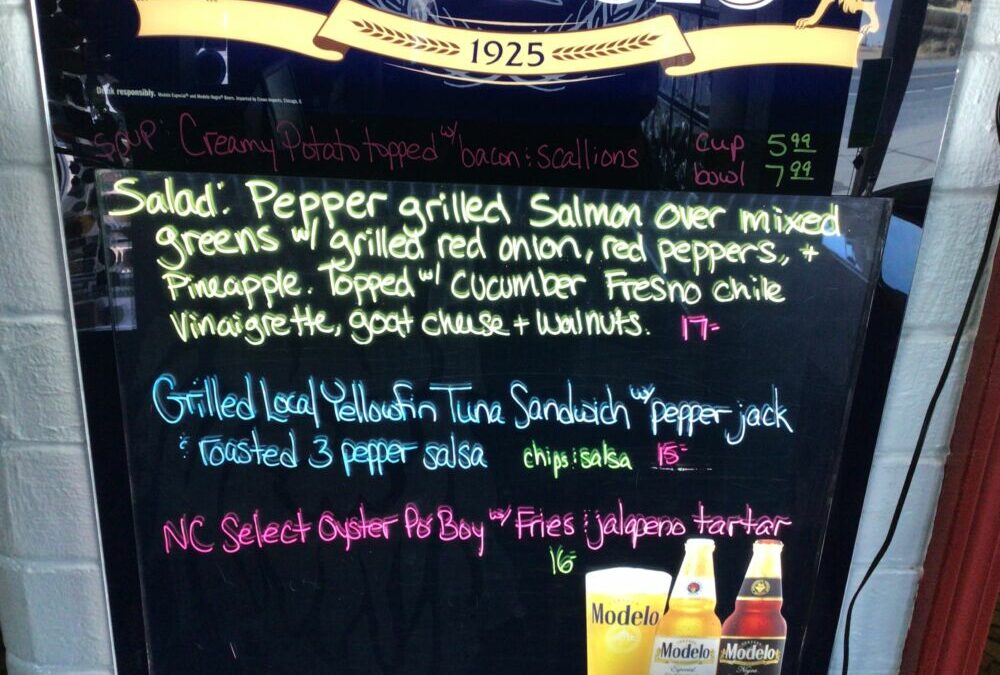 1925
Drink responsibly. Modelo Especial® and Modelo Negra® Beers. Imported by Crown Imports, Chicago, IL
Soup: Creamy Potato topped w/ bacon & scallions cup 5.99
bowl 7.99
Salad: Pepper grilled Salmon over mixed
greens w/ grilled red onion, red peppers, +
Pineapple. Topped w/ Cucumber Fresno Chile
Vinaigrette, goat cheese + walnuts. 17-
Grilled Local Yellowfin Tuna Sandwich w/ pepper jack
& roasted 3 pepper salsa chips & salsa 15-
NC Select Oyster Po Boy w/ Fries & jalapeno tartar
16-
Modelo
Modelo
Especial
Modelo
Negra